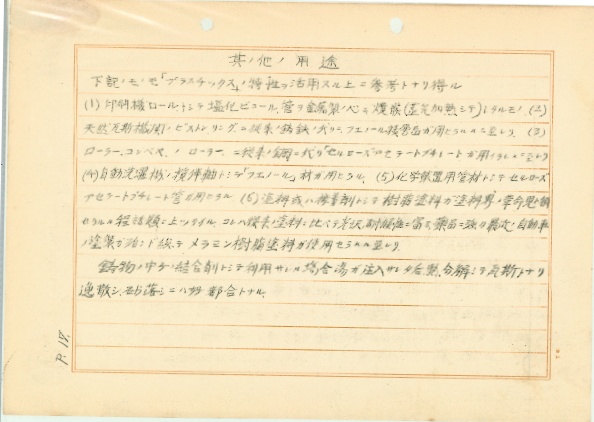 其ノ他ノ用途
下記ノモノモ「プラスチックス」ノ特性ヲ活用スル上ニ参考トナリ得ル
(1) 印刷機ロールトシテ塩化ビニール管ヲ金属製ノ心ニ (蒸気加熱シテ)トリタルモノ (2)
天然瓦斯機関ノピストンリングニ従来ノ鋳鉄ノ代リニフェノール積層品ガ用ヒラルルニ至レリ (3)
ローラーコンベヤーノローラーニ従来ノ鋼ニ代リセルローズアセテートブチレートガ用ヒラルルニ至レリ
(4) 自動洗濯機ノ撹拌軸トシテ「フェノール」材ガ用ヒラル、(5) 化学装置用管材トシテセルローズ
アセテートブチレート管ガ用ヒラル (6) 塗料或ハ接着剤トシテ樹脂塗料ガ塗料界ノ革命児ト称
セラルル程話題ニ上ツタガ コレハ従来ノ塗料ニ比ベテ光沢耐候性ニ富ミ薬品ニ強ク最近ノ自動車
ノ塗装ガ殆ンド総テメラミン樹脂塗料ガ使用セラルルニ至レリ
鋳物ノ中子ノ結合剤トシテ利用サレル場合湯ガ注入サレタ后熱分解シテ瓦斯トナリ
逸散シ、砂落シニハ好都合トナル、
P. 17.